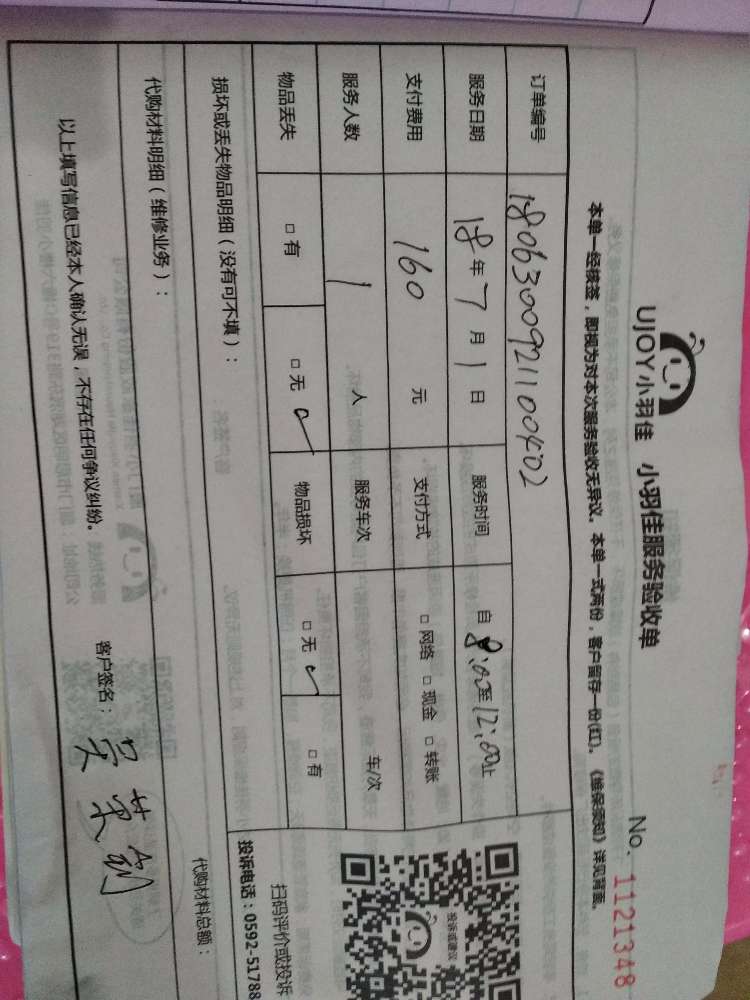 UJOY小羽佳 小羽佳服务验收单 No. 1121348
本单一经核签，即视为对本次服务验收无异议。本单一式两份，客户留存一份(红)。《维保须知》详见背面。
订单编号 180630092110040402
服务日期 18年7月1日 服务时间 自8:00至12:00止
支付费用 160 元 支付方式 □网络 □现金 □转账
服务人数 1 人 服务车次 车/次
物品丢失 □有 □无 ✓ 物品损坏 □无 ✓ □有
损坏或丢失物品明细（没有可不填）：
投诉或建议
扫码评价或投诉
投诉电话：0592-51788
代购材料明细（维修业务）：
代购材料总额：
以上填写信息已经本人确认无误，不存在任何争议纠纷。 客户签名：